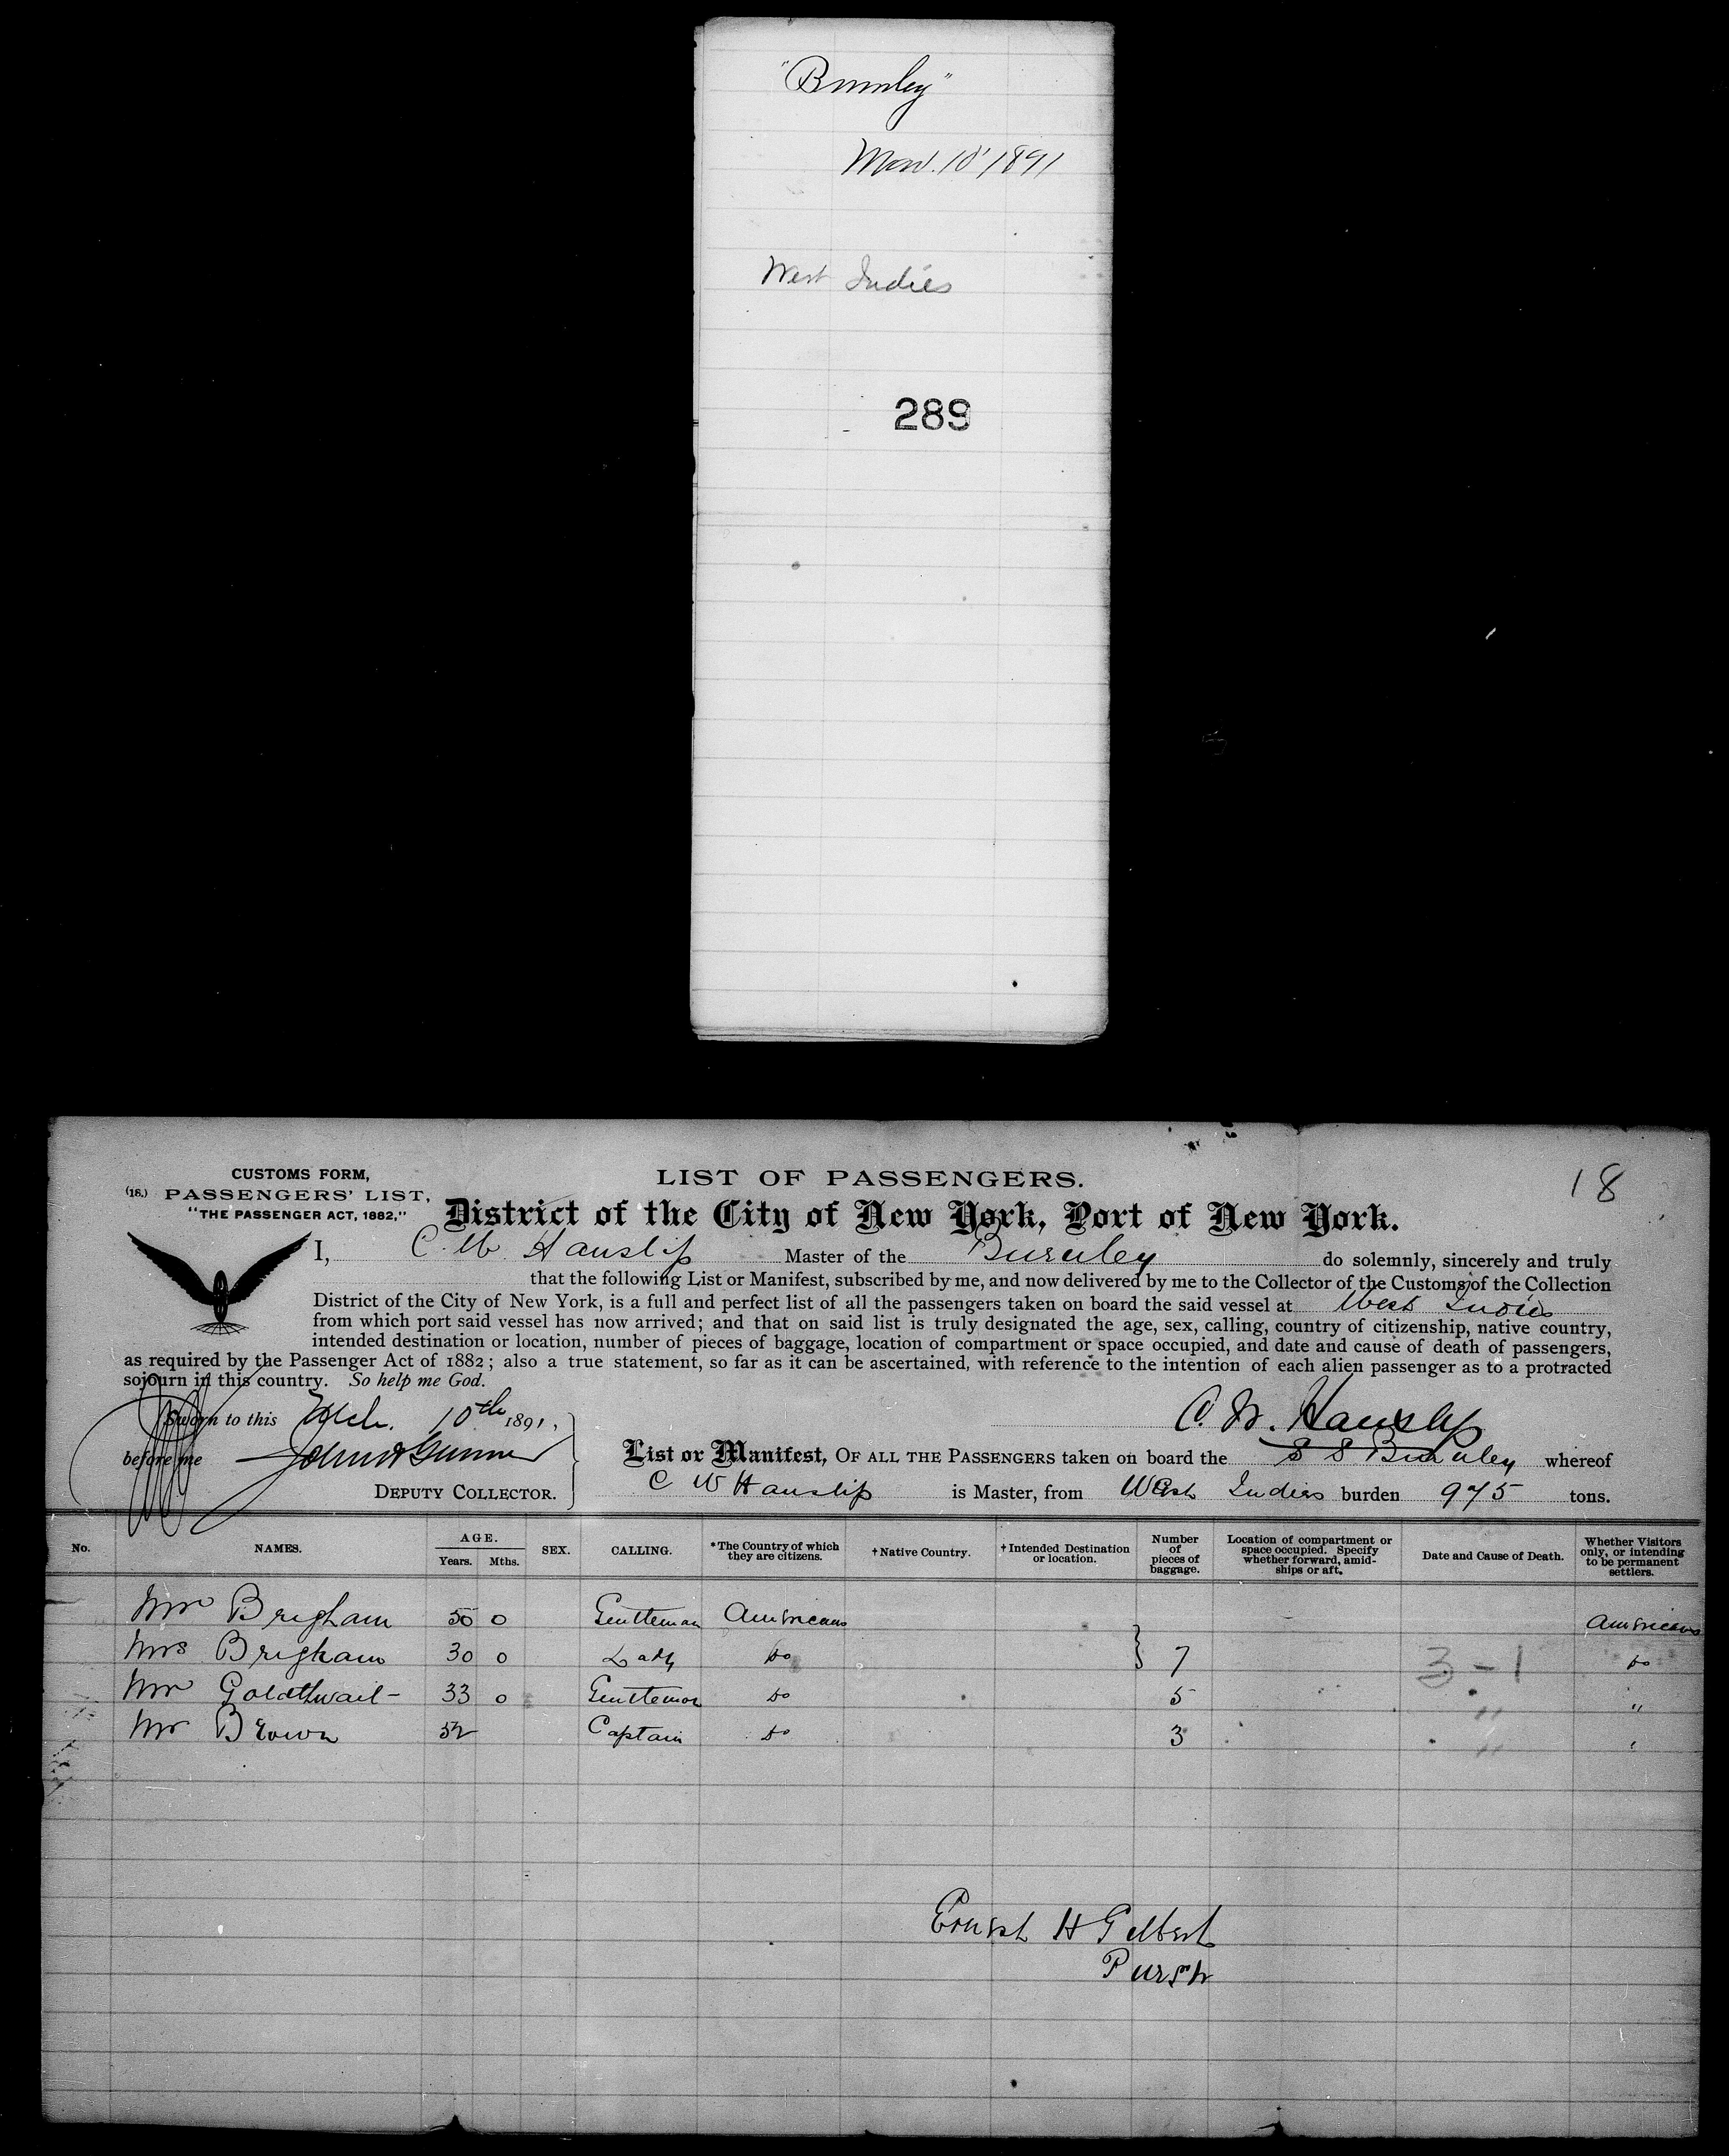 "Burnley"
Mar. 10' 1891
West Indies
289
18
CUSTOMS FORM,
(18.) PASSENGERS' LIST,
"THE PASSENGER ACT, 1882,"
LIST OF PASSENGERS.
District of the City of New York, Port of New York.
I, C. W. Hanslip Master of the Burnley do solemnly, sincerely and truly
that the following List or Manifest, subscribed by me, and now delivered by me to the Collector of the Customs of the Collection
District of the City of New York, is a full and perfect list of all the passengers taken on board the said vessel at West Indies
from which port said vessel has now arrived; and that on said list is truly designated the age, sex, calling, country of citizenship, native country,
intended destination or location, number of pieces of baggage, location of compartment or space occupied, and date and cause of death of passengers,
as required by the Passenger Act of 1882; also a true statement, so far as it can be ascertained, with reference to the intention of each alien passenger as to a protracted
sojourn in this country. So help me God.
Sworn to this Mch. 10th 1891,
before me
DEPUTY COLLECTOR.
C. W. Hanslip
List or Manifest, OF ALL THE PASSENGERS taken on board the S S Burnley whereof
C W Hanslip is Master, from West Indies burden 975 tons.
No. NAMES. AGE. Years. Mths. SEX. CALLING. *The Country of which they are citizens. †Native Country. †Intended Destination or location. Number of pieces of baggage. Location of compartment or space occupied. Specify whether forward, amidships or aft. Date and Cause of Death. Whether Visitors only, or intending to be permanent settlers.
Mr Brigham 50 0 Gentleman Americans Americans
Mrs Brigham 30 0 Lady do 7 3-1 do
Mr Goldthwait 33 0 Gentleman do 5 " "
Mr Brown 52 Captain do 3 " "
Ernest H Gilbert
Purser